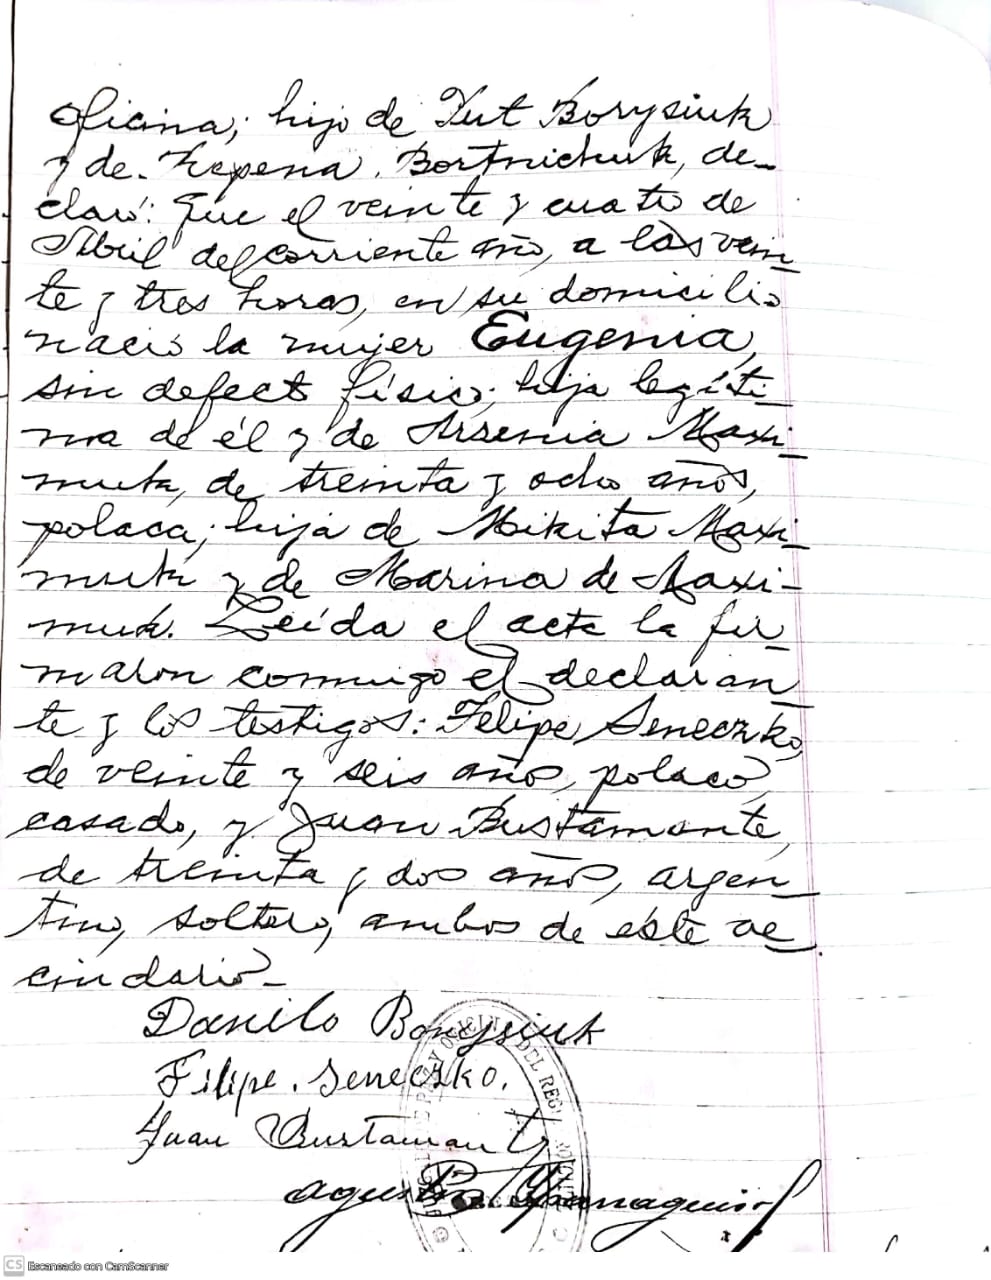 oficina; hijo de Iut Borysiuk
y de Kepena Bortnichuk, de-
claró: Que el veinte y cuatro de
Abril del corriente año, a las vein-
te y tres horas, en su domicilio
nació la mujer Eugenia,
sin defecto físico; hija legíti-
ma de él y de Arsenia Maxi-
muk, de treinta y ocho años,
polaca; hija de Mikita Maxi-
muk y de Marina de Maxi-
muk. Leída el acta la fir-
maron conmigo el declaran-
te y los testigos: Felipe Seneczko,
de veinte y seis años, polaco,
casado, y Juan Bustamante,
de treinta y dos años, argen-
tino, soltero, ambos de éste ve-
cindario-
Danilo Borysiuk
Filipe. Seneczko.
Juan Bustamant
DEL REG
CS Escaneado con CamScanner